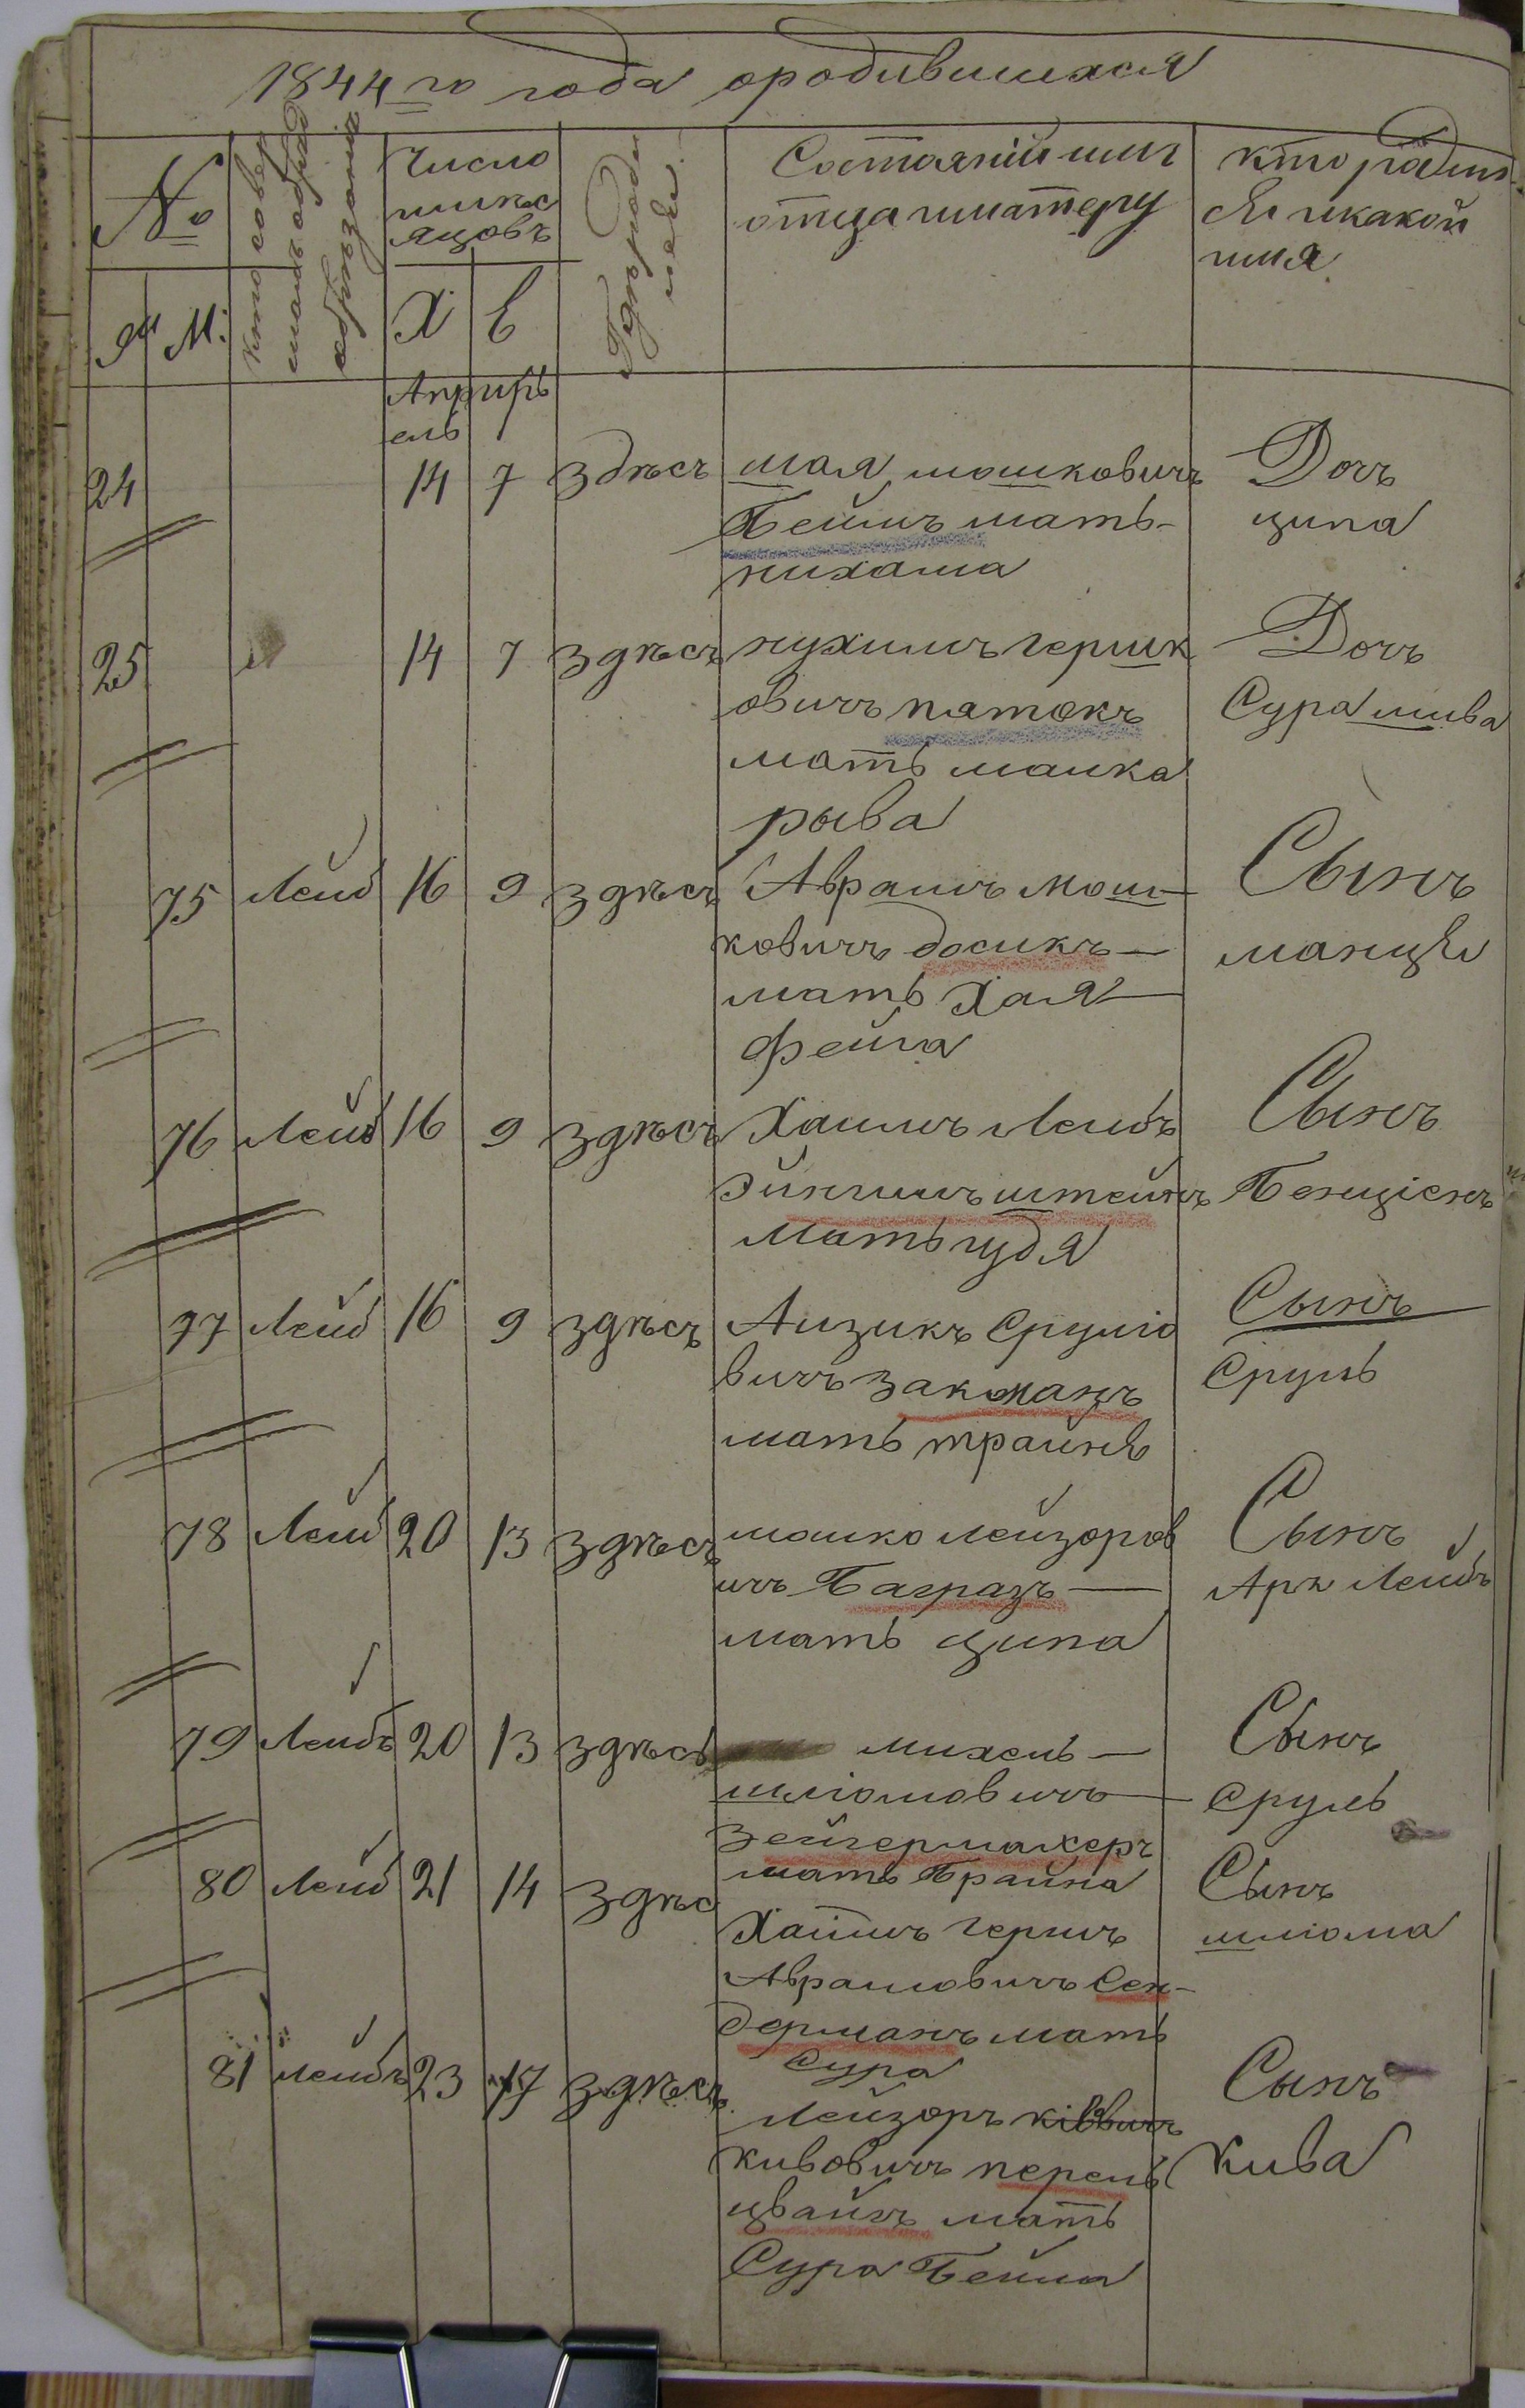 1844го года ородившихся
№
Ж
М.
кто совер
шалъ обряд
обрѣзанія
Число
имѣс
яцовъ
Х
Е
Гдѣ роди
лся
Состояній имя
отца иматеру
кто родил
ся икакой
имя
Апр
ель
24
14
7
здѣсъ
шая мошковичъ
Беймъ мать-
нихама
Дочъ
ципа
25
14
7
здѣсъ
нухимъ гершк
овичъ патокъ
мать малка
рыва
Дочъ
Сура шива
75
Лейб
16
9
здѣсъ
Аврамъ мош-
ковичъ досикъ-
мать Хая-
фейга
Сынъ
манця
76
Лейб
16
9
здѣсъ
Хаимъ Лейбъ
Эйнгимъ штейнъ
Мать гудя
Сынъ
Бенціенъ
77
Лейб
16
9
здѣсъ
Аизикъ Сруліо
вичъ закманъ
мать трайня
Сынъ
Сруль
78
Лей
20
13
здѣсъ
мошко лейзоров
ичъ Багразъ-
мать ципа
Сынъ
Арн Лейбъ
79
Лейбъ
20
13
здѣсь
михель-
шліомовичъ-
Зейгермахеръ
мать Брайна
Сынъ
Сруль
80
Лейб
21
14
здѣс
Хаимъ гершъ
Аврамовичъ Сен-
дерманъ мать
Сура
Сынъ
шліома
81
лейбъ
23
17
здѣсъ
Лейзоръ ківовичъ
кивовичъ перель
цвайгъ мать
Сура Бейла
Сынъ
Кива